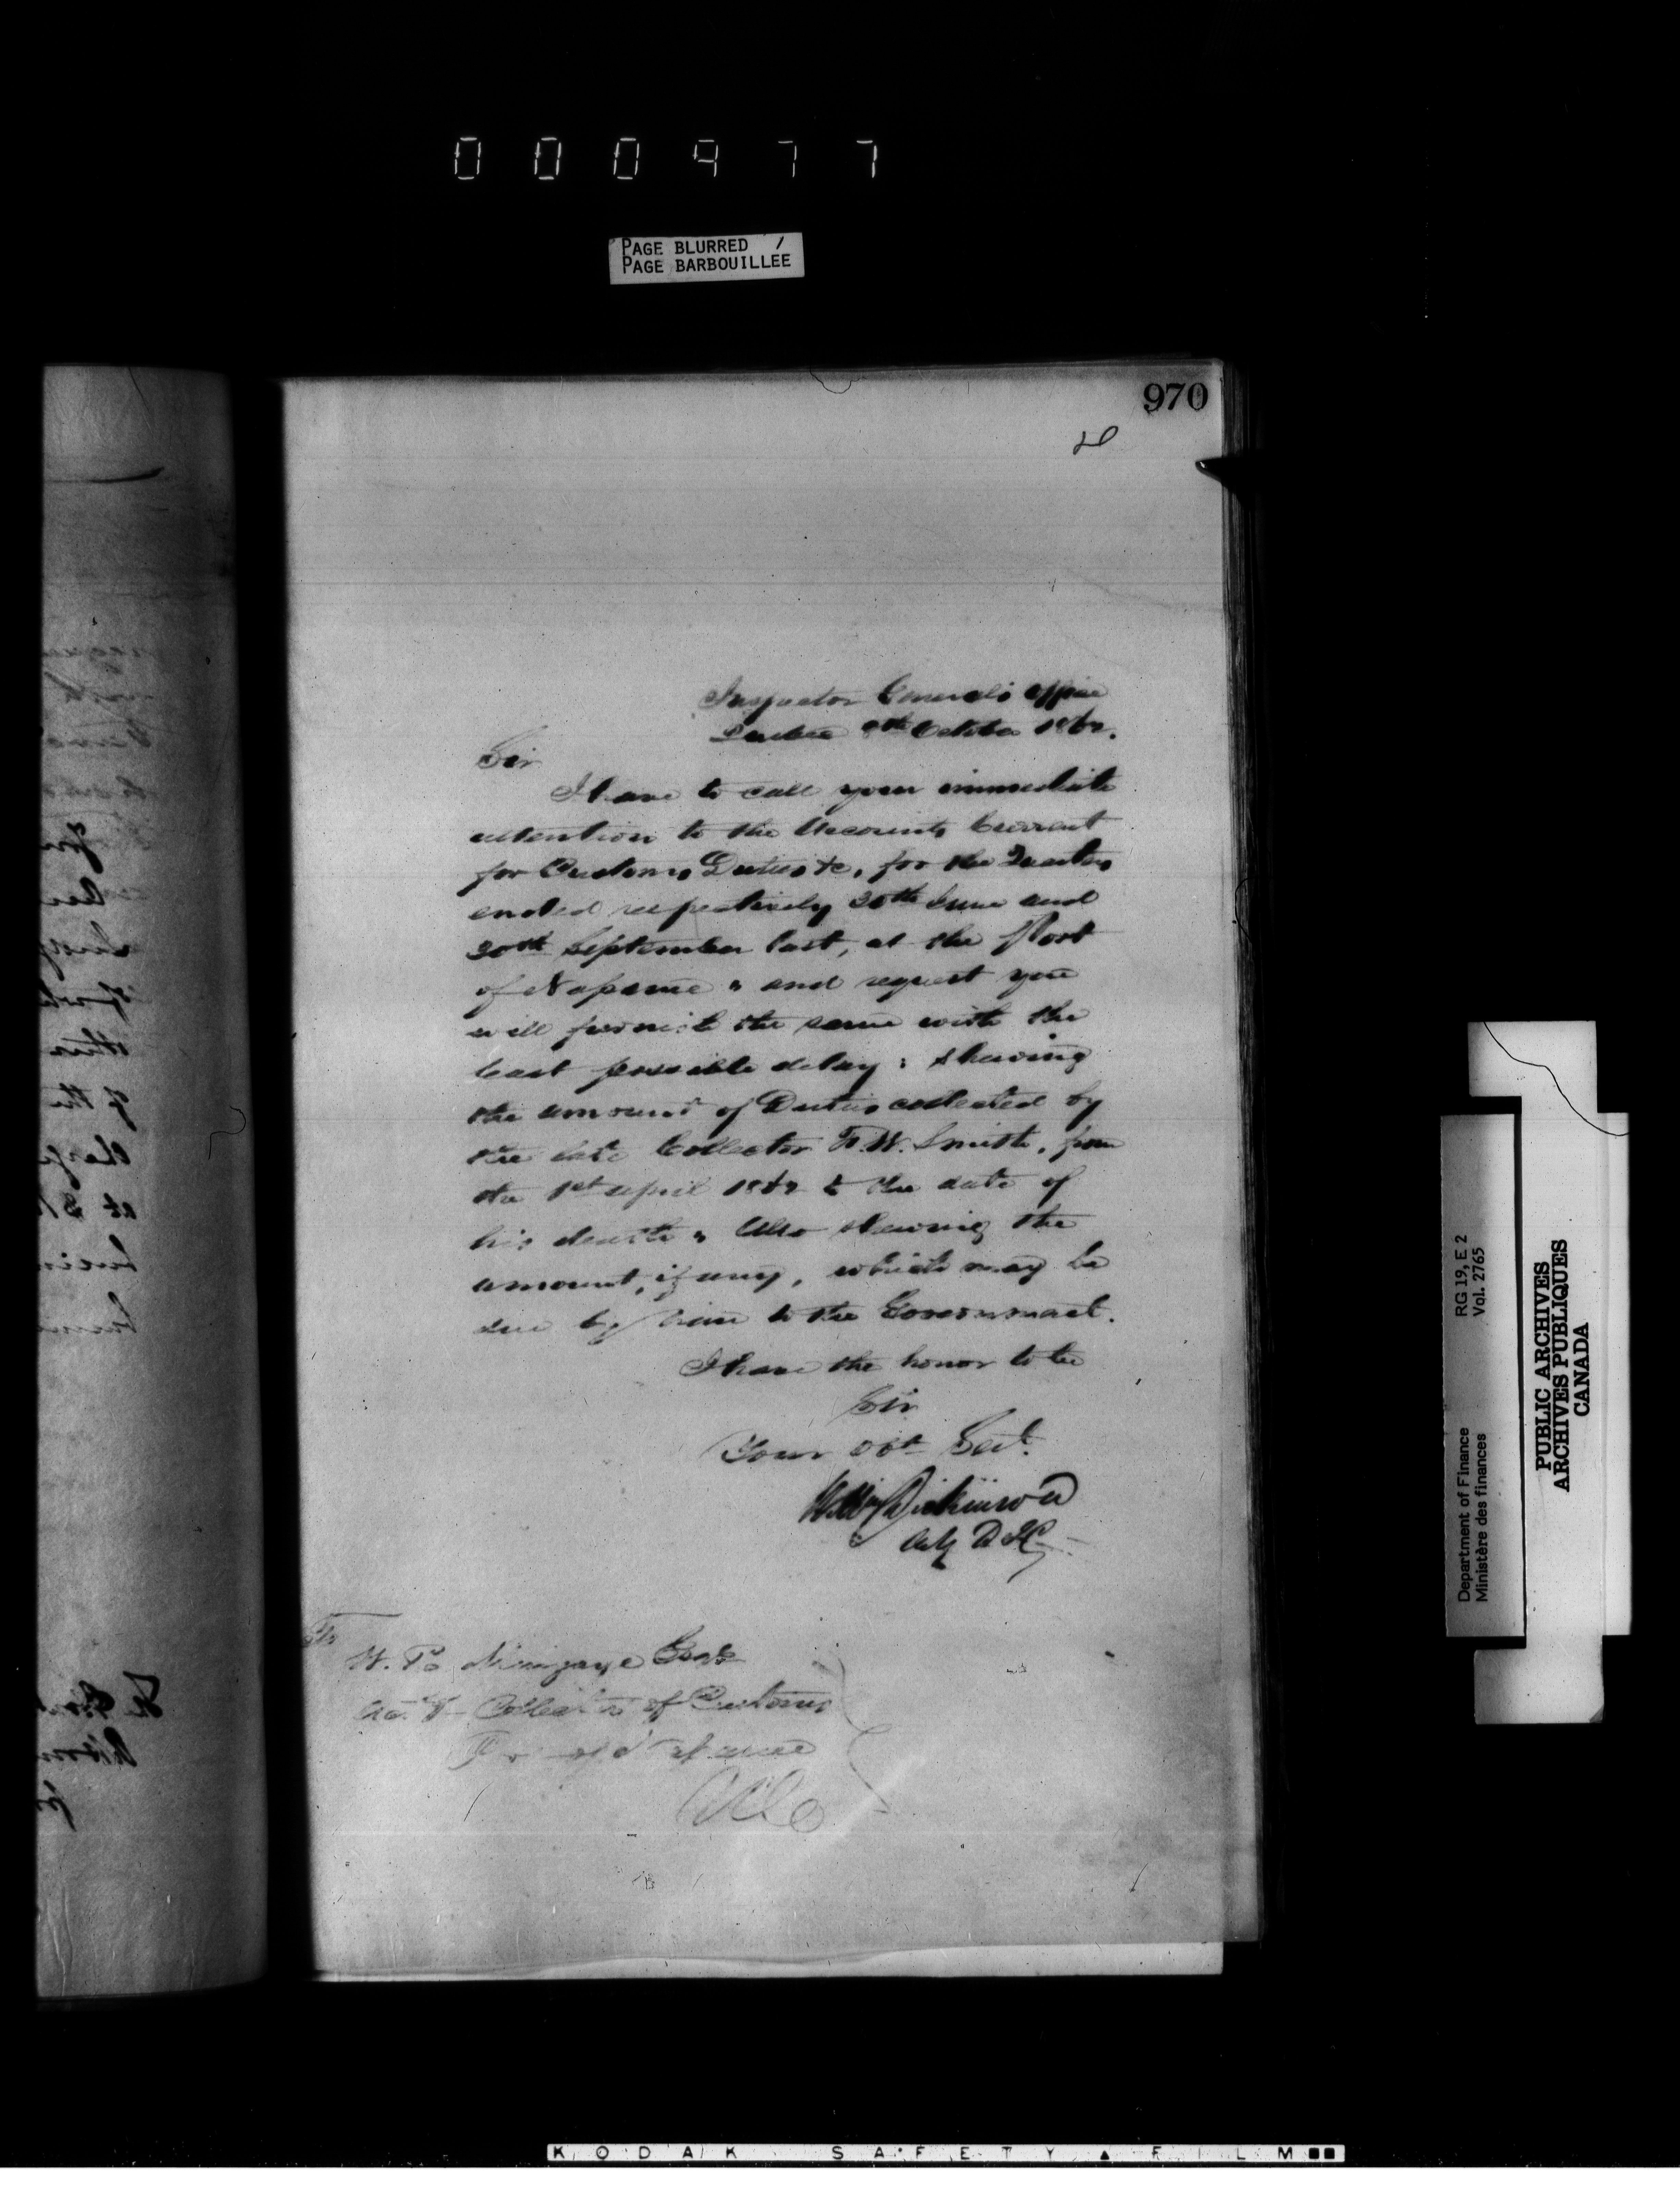 000977
PAGE BLURRED /
PAGE BARBOUILLEE
970
Inspector General's Office
Quebec 9th October 1862.
Sir
I have to call your immediate
attention to the Accounts Current
for Customs Duties &c, for the Quarters
ended respectively 30th June and
30th September last, at the Port
of Napanee, and request you
will furnish the same with the
least possible delay; shewing
the amount of Duties collected by
the late Collector F. W. Smith, from
the 1st April 1862 to the date of
his death, Also shewing the
amount, if any, which may be
due by him to the Government.
I have the honor to be
Sir
Your Obt Sert.
Wm Dickinson
To
W. Esqre
Actg Collector of Customs
Port of Napanee
RG 19, E 2
Vol. 2765
Department of Finance
Ministère des finances
PUBLIC ARCHIVES
ARCHIVES PUBLIQUES
CANADA
KODAK SAFETY FILM